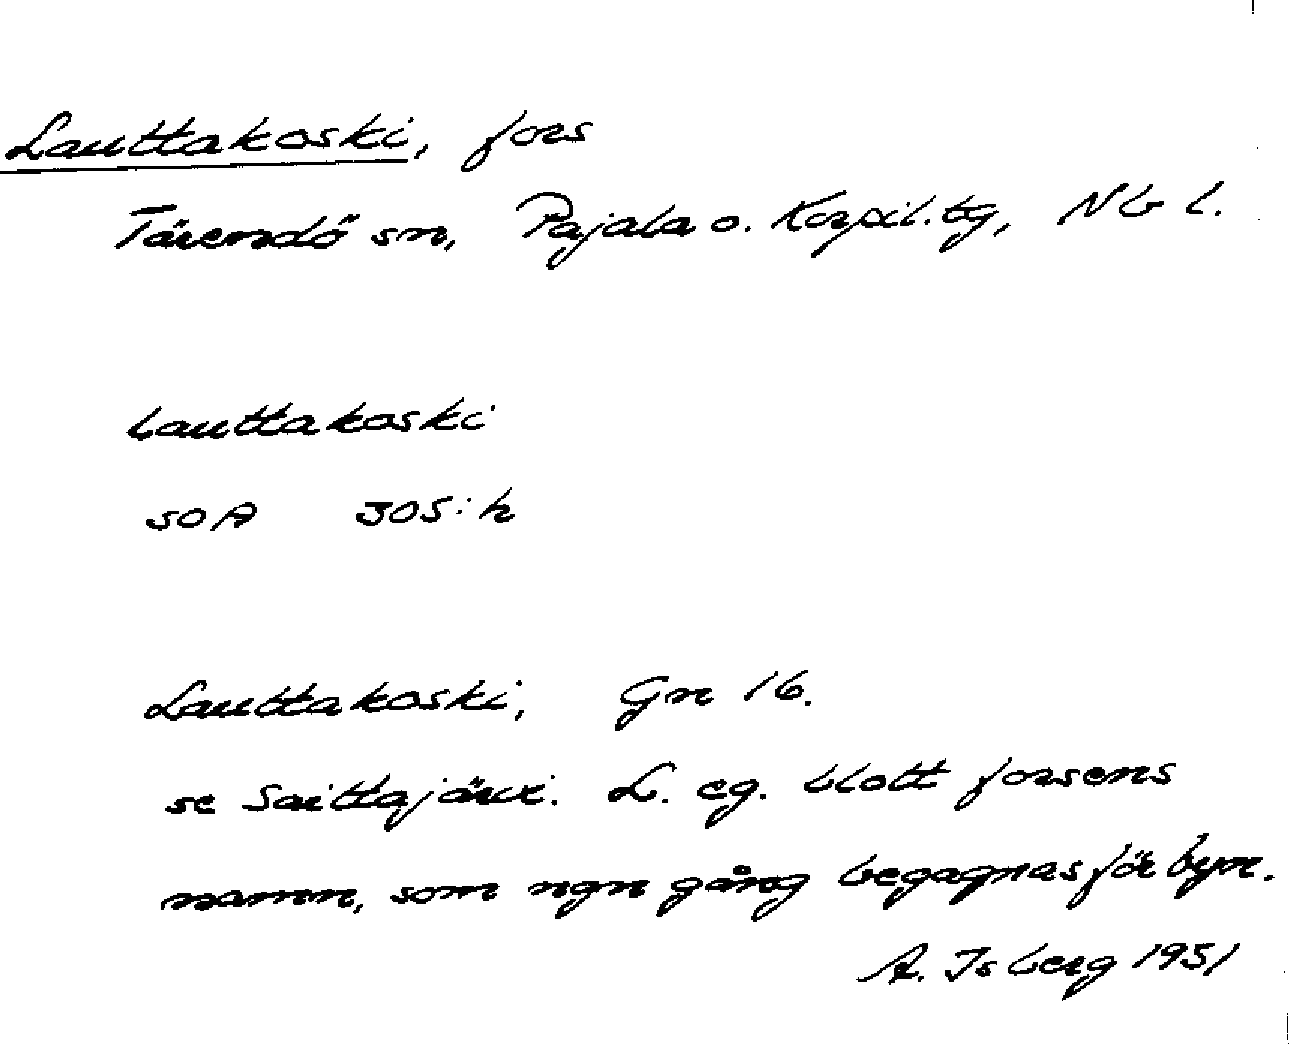 Lauttakoski, fors
Tärendö sn, Pajala o. Korpil. tg, Nb l.
Lauttakoski
SOA 305:h
Lauttakoski, Gn 16.
se Saittajärvi. L. eg. blott forsens
namn, som ngn gång begagnas för byn.
A. Isberg 1951